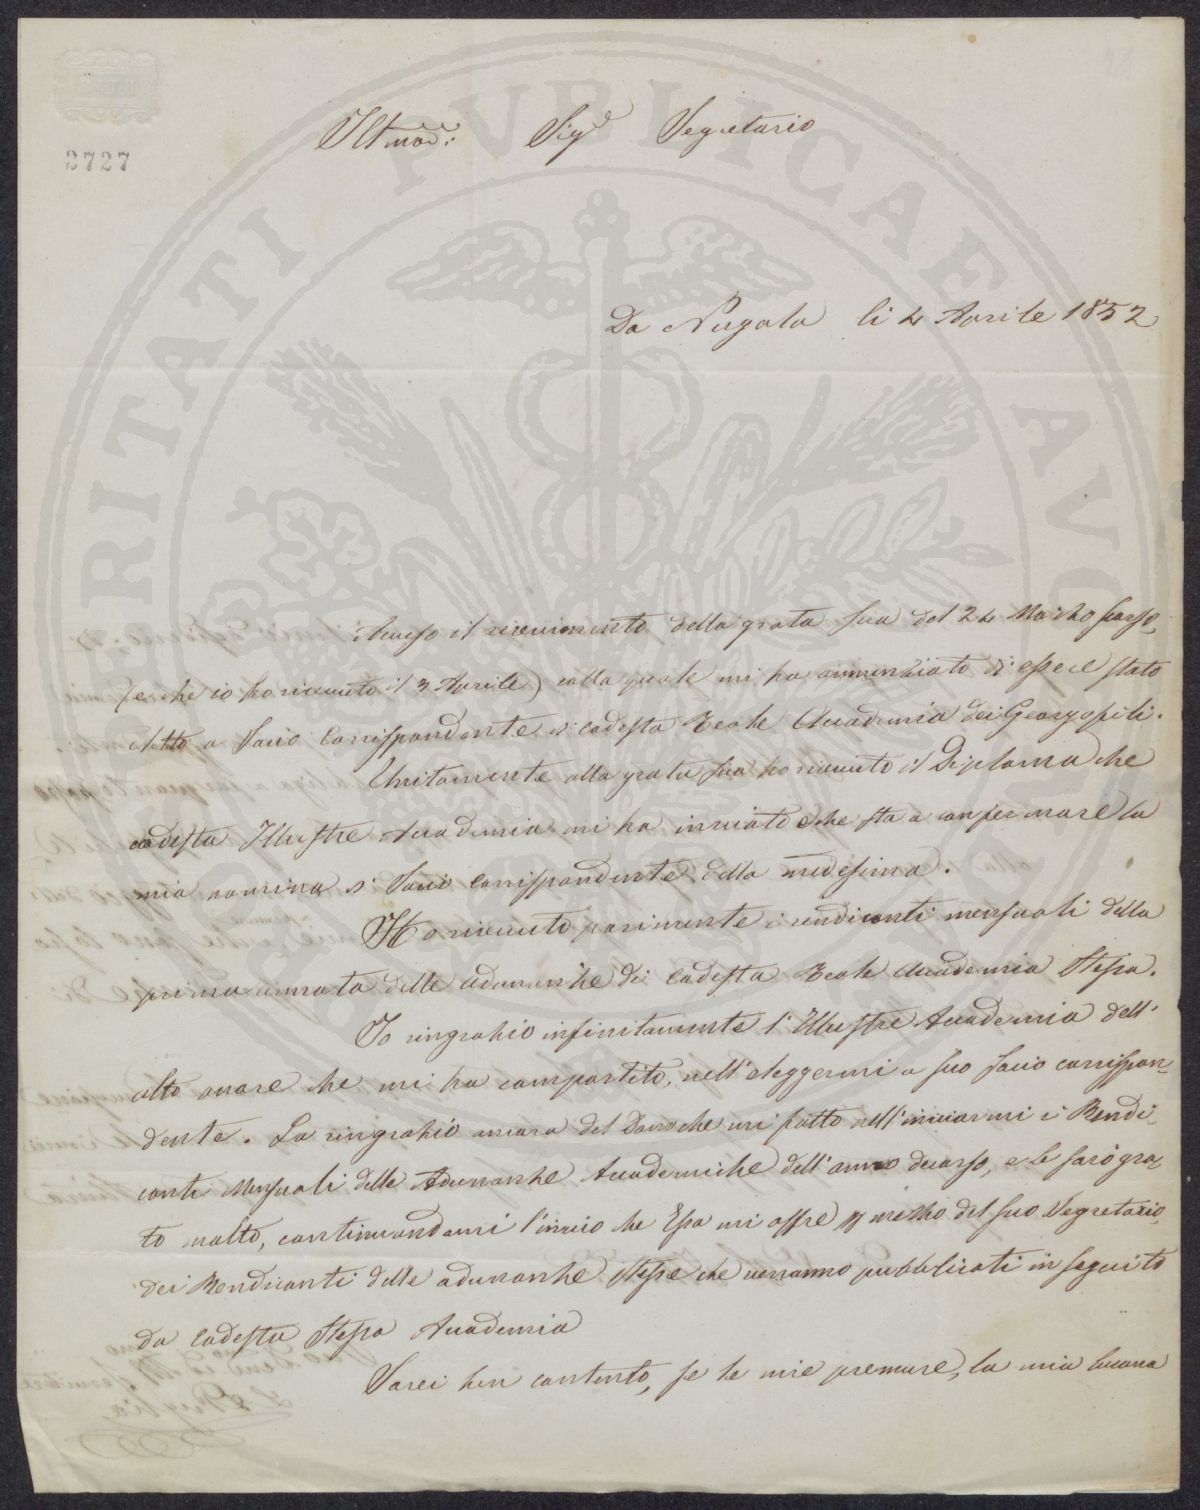 2727
Illmo: Sigr Segretario
Da Nugola li 4 Aprile 1852
Accuso il ricevimento della grata sua del 24 Marzo scorso,
(e che io ho ricevuto il 3 Aprile) colla quale mi ha annunziato di essere stato
eletto a Socio Corrispondente di codesta Reale Accademia dei Georgofili.
Unitamente alla grata sua ho ricevuto il Diploma che
codesta Illustre Accademia mi ha inviato e che sta a confermare la
mia nomina di Socio Corrispondente della medesima.
Ho ricevuto parimente i rendiconti mensuali della
prima annata delle adunanze di codesta Reale Accademia stessa.
Io ringrazio infinitamente l'Illustre Accademia dell'
alto onore che mi ha compartito, nell'eleggermi a suo socio corrispon-
dente. La ringrazio ancora del Dono che mi fatto nell'inviarmi i Rendi-
conti Mensuali delle Adunanze Accademiche dell'anno decorso, e le sarò gra-
to molto, continuandomi l'invio che Essa mi offre p mezzo del suo Segretario,
dei Rendiconti delle adunanze stesse che verranno pubblicati in seguito
da codesta stessa Accademia
Sarei ben contento, se le mie premure, la mia buona
PUBLICAE